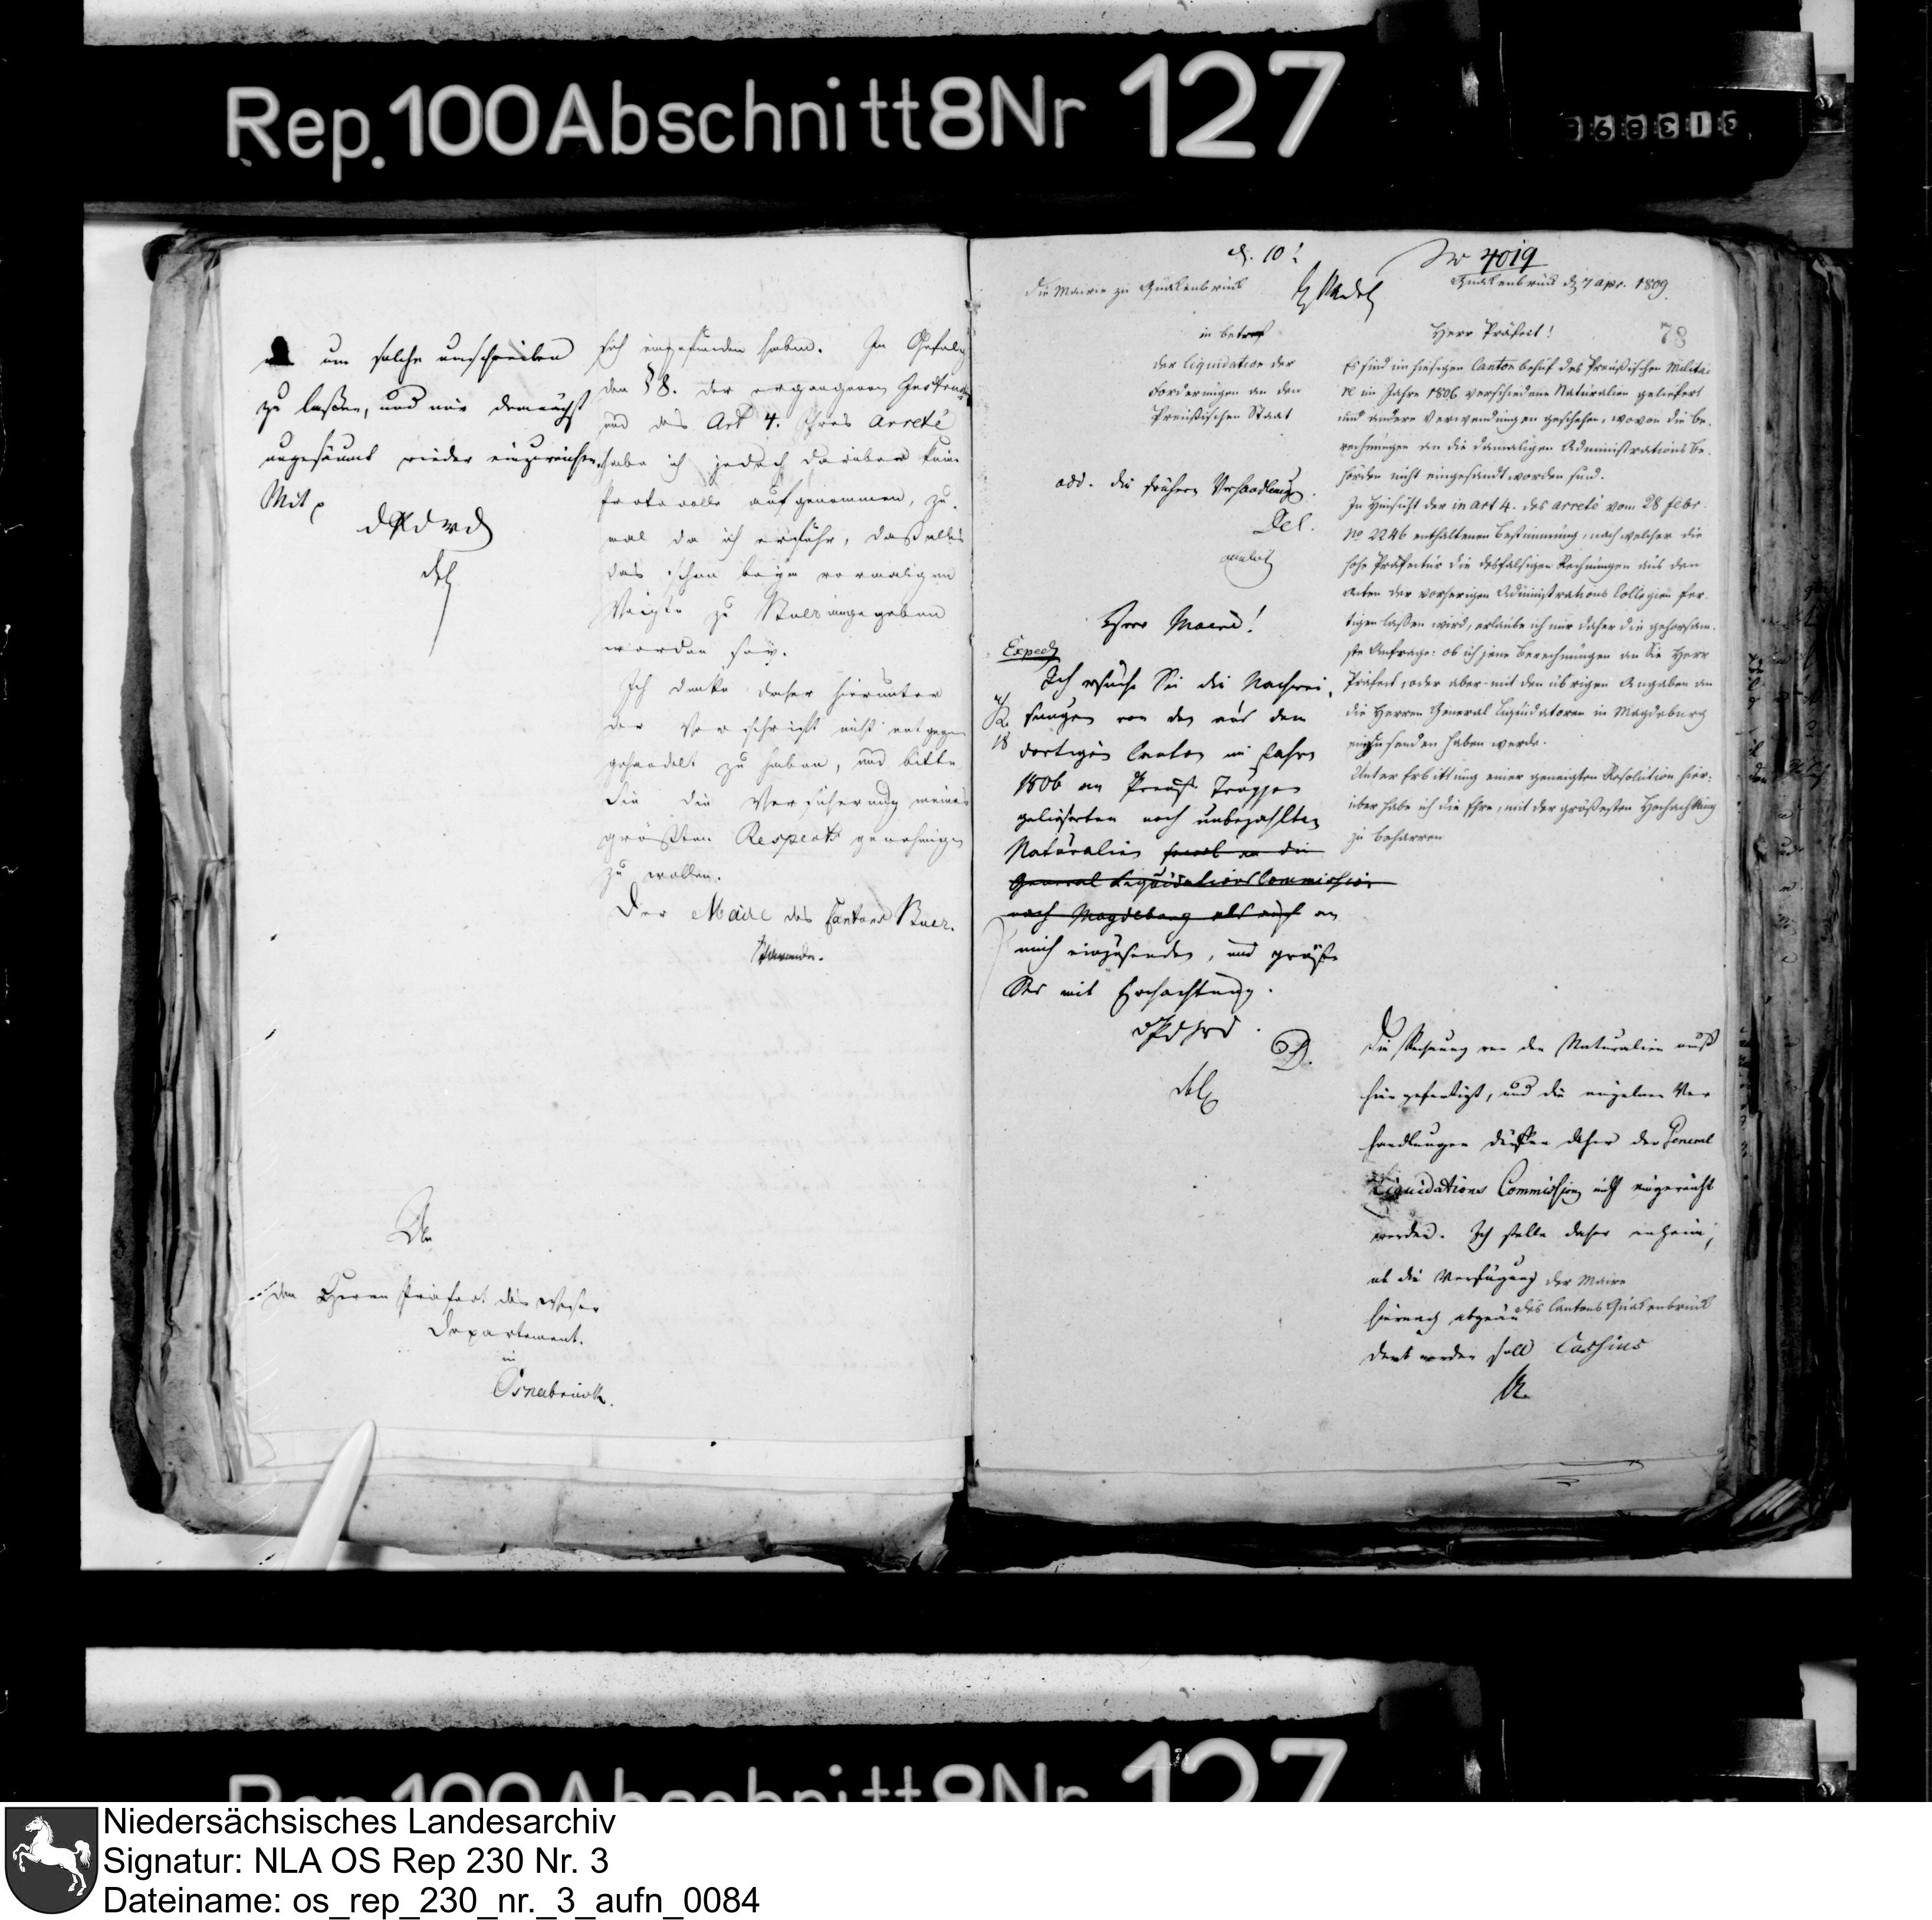 Rep. 100 Abschnitt 8 Nr 127
um solche umschreiben
zu laßen, und mir demnächst
ungesäumt wieder einzureichen.
Mit
sich eingefunden haben. In Gefolg
den § 8. der ergangenen Instruct.
und des Art 4. Ihres Arreté
habe ich jedoch darüber kein
Protocolle aufgenommen, zu-
mal da ich erfuhr, daß alles
das schon beym vormaligen
Voigte zu Buer angegeben
worden sey.
Ich denke daher hierunter
der Vorschrift nicht entgegen
gehandelt zu haben, und bitte
die Versicherung meines
größten Respects genehmigen
zu wollen.
Der Maire des Cantons Buer.
An
den Herrn Präfect des Weser
Departement.
in
Osnabrück.
d. 10!
No 4019
Die Mairie zu Quakenbrück
Quakenbrück d 7 apr. 1809.
78
in betref
der Liquidation der
Forderungen an den
Preußischen Staat
add. die frühern Verhandlungen.
Del.
Herr Maire!
Exped
Ich ersuche Sie die Nachwei-
sungen von den aus dem
dortigen Canton im Jahre
1806 an Preuß. Truppen
gelieferten noch unbezahlten
Naturalien sowol an die
General Liquidations Commission
nach Magdeburg als auch an
mich einzusenden, und grüße
Sie mit Hochachtung.
Herr Präfect!
Es sind im hiesigen Canton behuf des Preußischen Militai-
re im Jahre 1806 verschiedene Naturalien geliefert
und andere Verwendungen geschehen, wovon die Be-
rechnungen an die damaligen Administrations Be-
hörden nicht eingesandt worden sind.
In Hinsicht der in art 4. des arreté vom 28 febr.
no 2246 enthaltenen Bestimmung, nach welcher die
hohe Präfectur die desfalsigen Rechnungen aus den
Acten der vorherigen Administrations Collegien fer-
tigen laßen wird, erlaube ich mir daher die gehorsam-
ste Anfrage: ob ich jene Berechnungen an Sie Herr
Präfect, oder aber mit den übrigen Angaben an
die Herren General Liquidatoren in Magdeburg
einzusenden haben werde.
Unter Erbittung einer geneigten Resolution hier-
über habe ich die Ehre, mit der größesten Hochachtung
zu beharren
der Maire
des Cantons Quakenbrück
Cassius
D.
Die Rechnung von den Naturalien muß
hier gefertigt, und die einzelnen Ver
handlungen dürfen daher der General
Liquidations Commission nicht eingereicht
werden. Ich stelle daher anheim,
ob die Verfügung
hiernach abgeän
dert werden soll
Rep. 100 Abschnitt 8 Nr 127
Niedersächsisches Landesarchiv
Signatur: NLA OS Rep 230 Nr. 3
Dateiname: os_rep_230_nr._3_aufn_0084